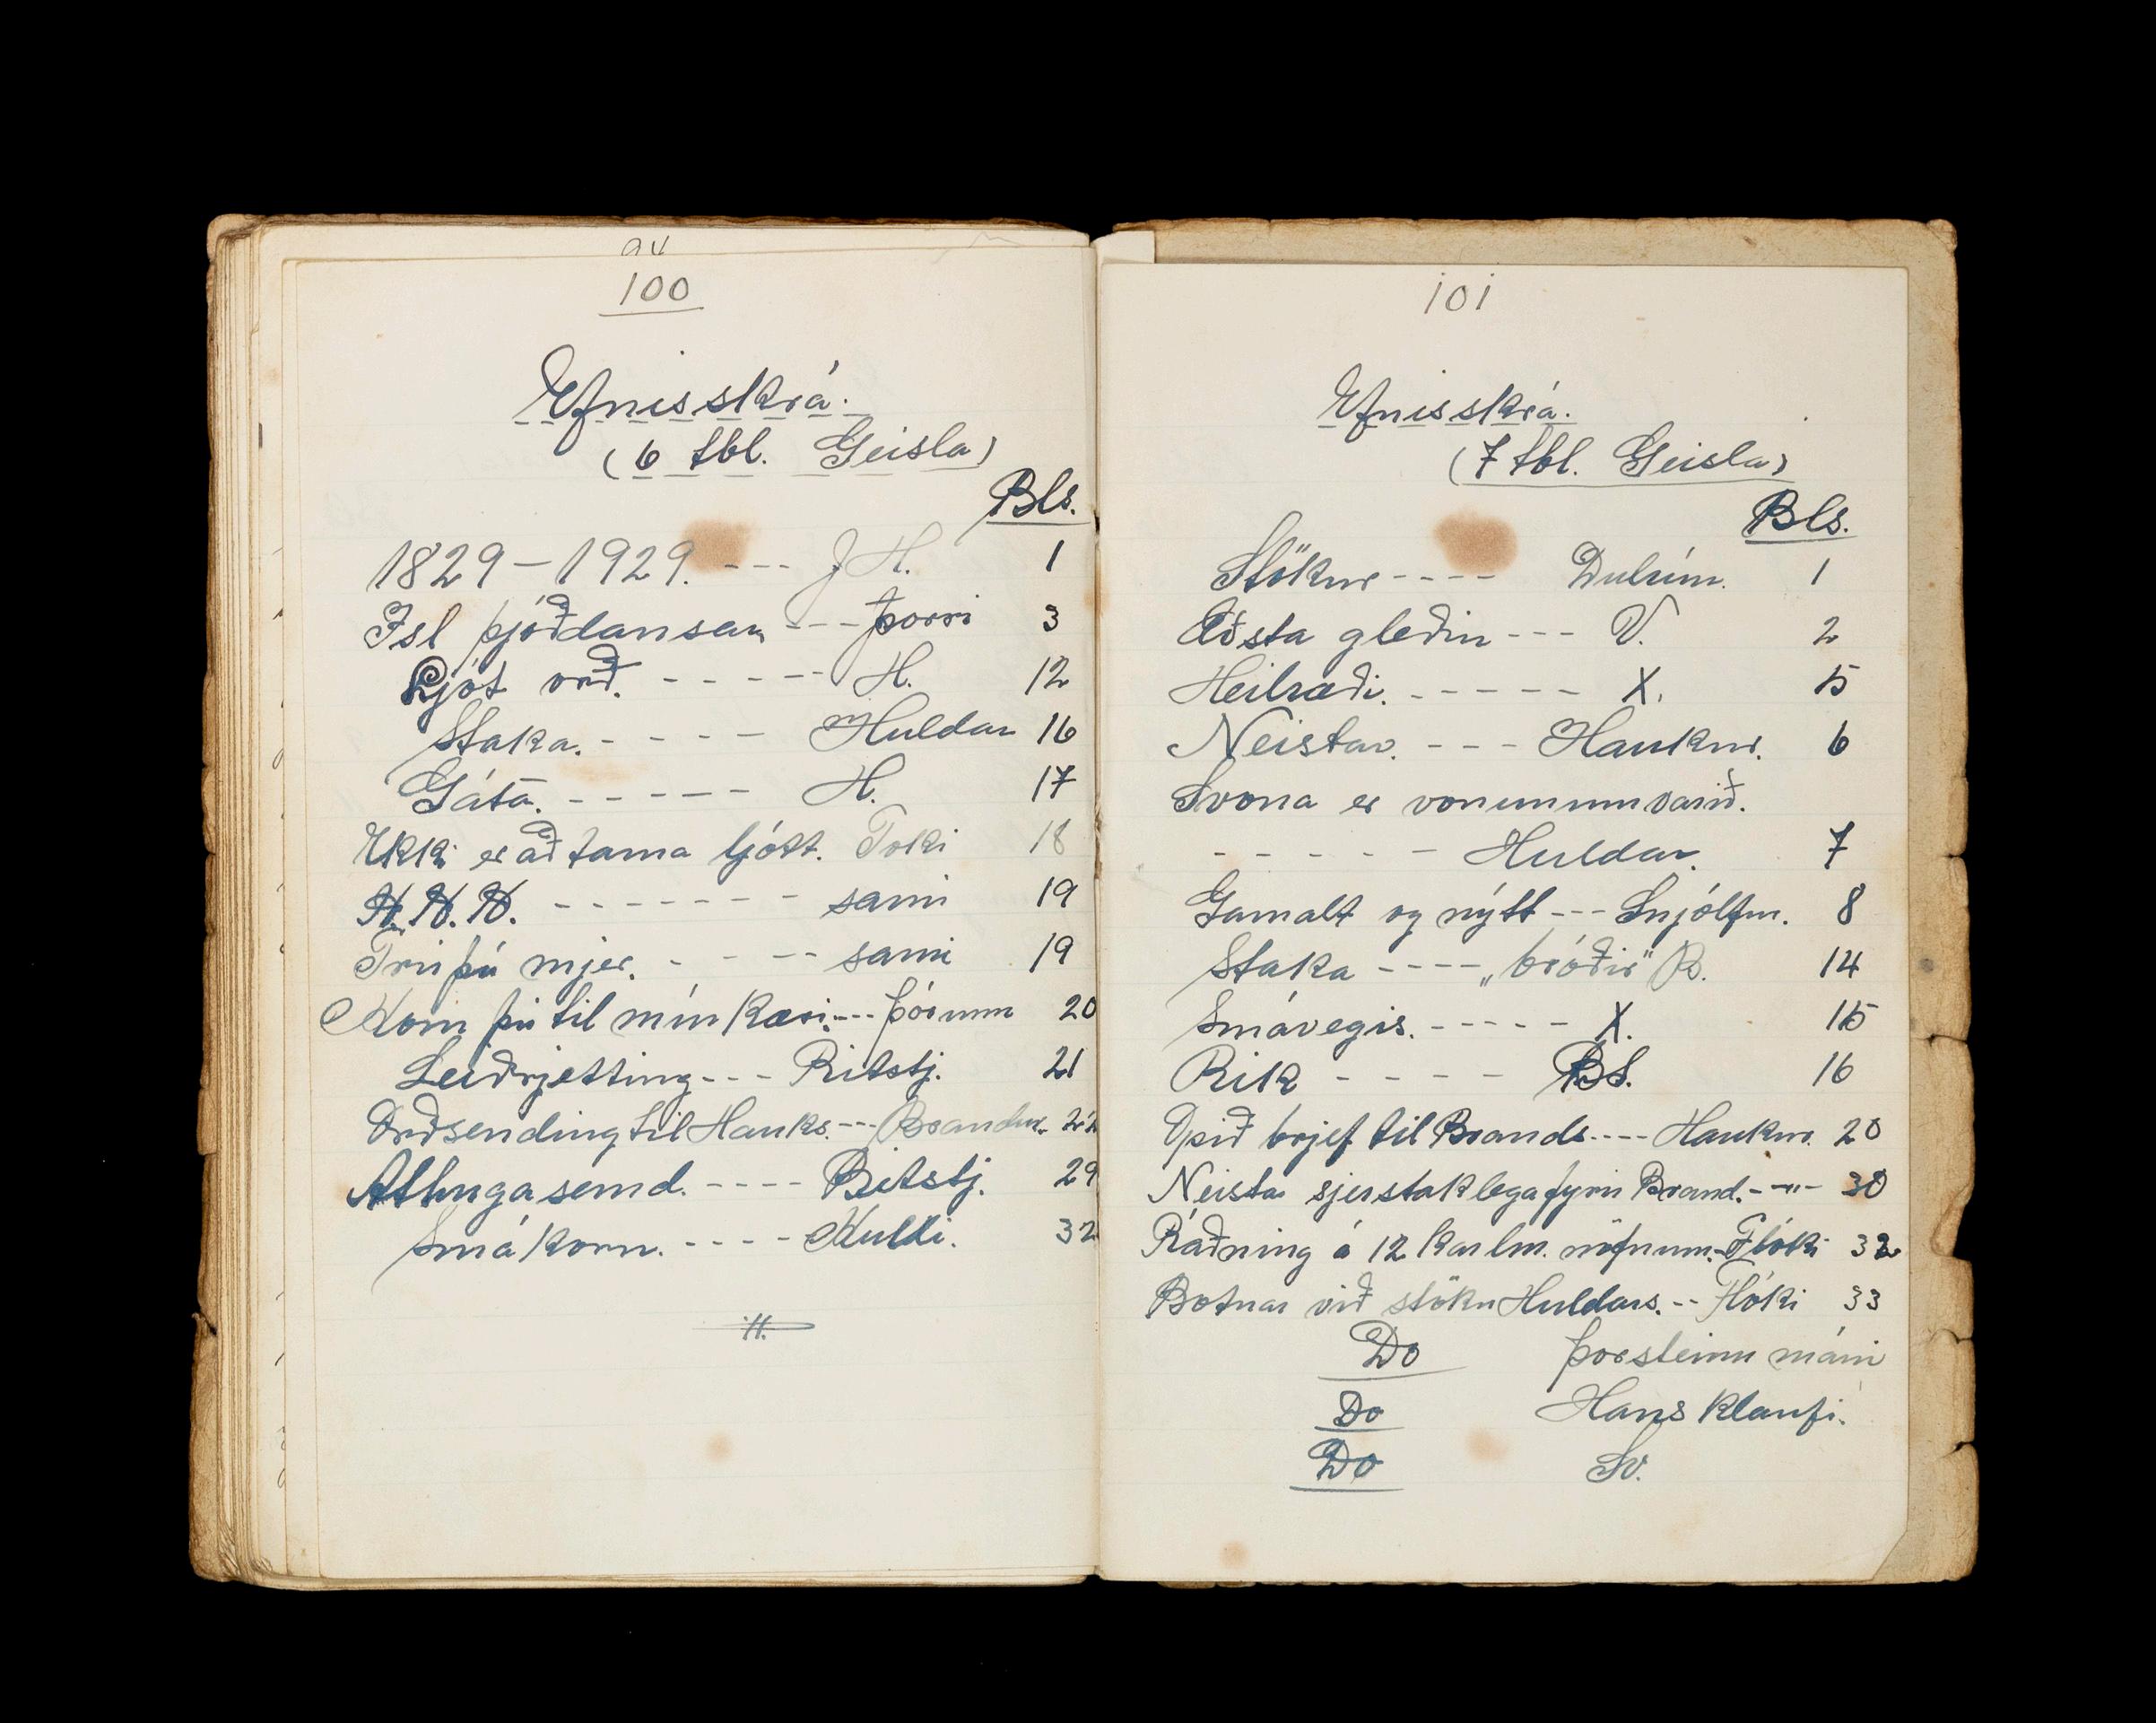 94
100
Efnisskrá.
(6 tbl. Geisla)
Bls.
1829-1929. --- J H. 1
Ísl þjóðdansar --- Þorri 3
Ljót orð. ----- H. 12
Staka. ---- Huldar 16
Gáta. ----- H. 17
Ekki er að tama ljótt. Toki 18
N. N. N. ------- sami 19
Trú þú mjer. ---- sami 19
Kom þú til mín kæri. --- Þórunn 20
Leiðrjetting --- Ritstj. 21
Orðsending til Hauks. --- Brandur. 22
Athugasemd. ---- Ritstj. 29
Smákorn. ---- Kuldi. 32
101
Efnisskrá.
(7 tbl. Geisla)
Bls.
Stökur ---- Dulrún. 1
Æðsta gleðin --- V. 2
Heilræði. ----- X. 5
Neistar. --- Haukur. 6
Svona er vonunum varið.
----- Huldar. 7
Gamalt og nýtt --- Snjólfur. 8
Staka ---- „bróðir" R. 14
Smávegis. ----- X. 15
Rik ---- BS. 16
Opið brjef til Brands. ---- Haukur. 20
Neistar sjerstaklega fyrir Brand. --"-- 30
Ráðning á 12 karlm. nöfnum. - Flóki 32
Botnar við stöku Huldars. -- Flóki 33
Do Þorsteinn máni
Do Hans klaufi.
Do Sv.